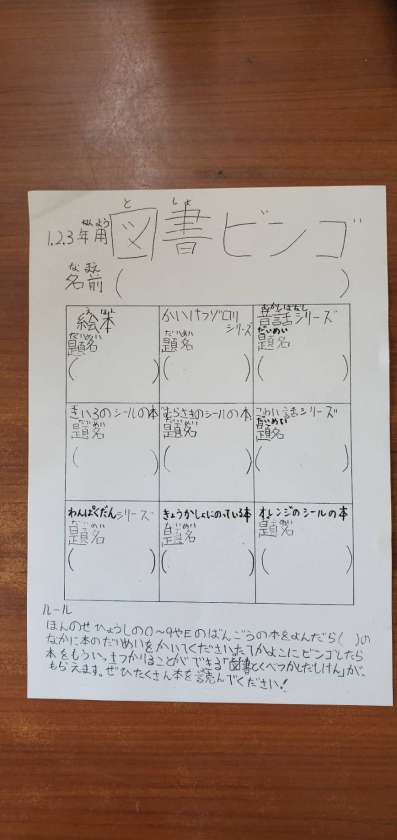 1.2.3年用 図書ビンゴ
なまえ
名前 ( )
絵本
だいめい
題名
( )
かいけつゾロリ
シリーズ
だいめい
題名
( )
むかしばなし
昔話シリーズ
だいめい
題名
( )
きいろのシールの本
だいめい
題名
( )
むらさきのシールの本
だいめい
題名
( )
こわい話シリーズ
だいめい
題名
( )
わんぱくだんシリーズ
だいめい
題名
( )
きょうかしょにのっている本
だいめい
題名
( )
オレンジのシールの本
題名
( )
ルール
ほんのせびょうしの0〜9やEのばんごうの本をよんだら( )の
なかに本のだいめいをかいてください。たてかよこにビンゴしたら
本をもういっさつかりることができる「図書とくべつかしだしけん」が、
もらえます。ぜひたくさん本を読んでください!